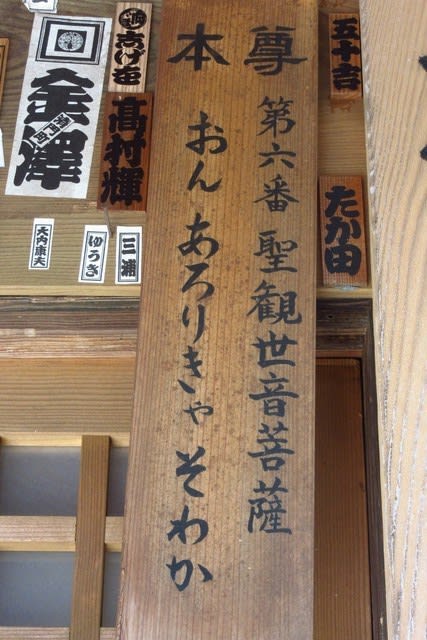 本尊
第六番聖観世音菩薩
おん あろりきゃ そわか
五十吉
たか田
志げ在
髙村輝
金澤
三浦
ゆうき
大内康夫